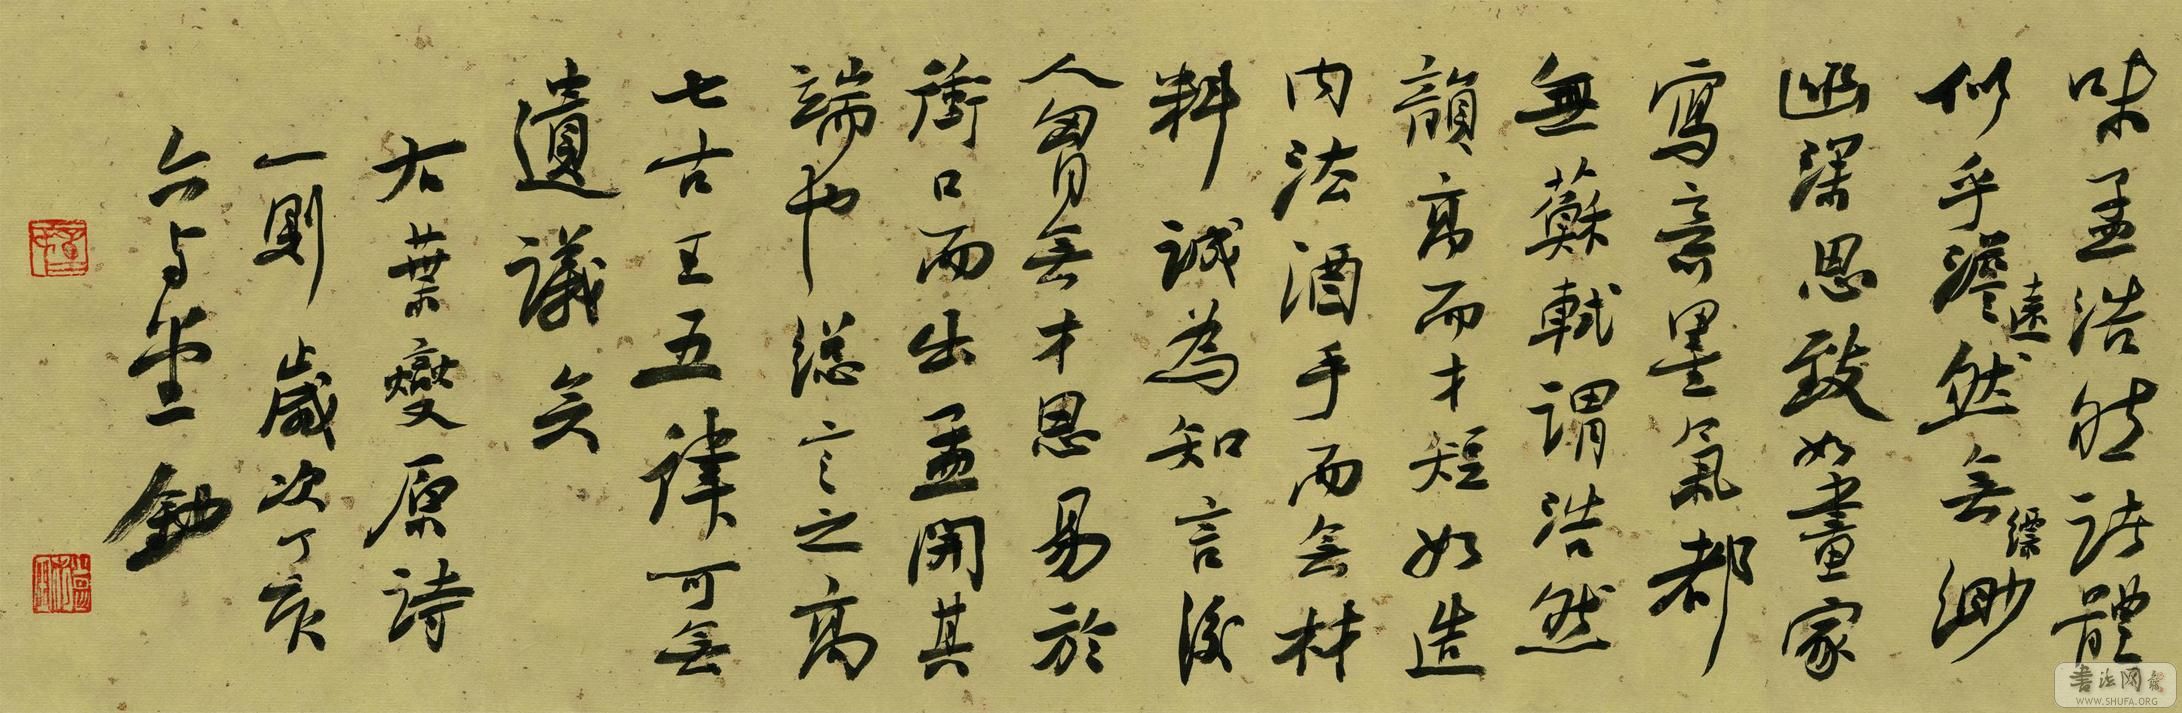 味孟浩然詩體
似乎澹遠然無縹緲
幽深思致如畫家
寫意墨氣都
無蘇軾謂浩然
韻高而才短如造
內法酒手而無材
料誠為知言後
人胷無才思易於
衝口而出孟開其
端也總言之高
七古王五律可無
遺議矣
右葉燮原詩
一則歲次丁亥
鈔
書法網
WWW.SHUFA.ORG